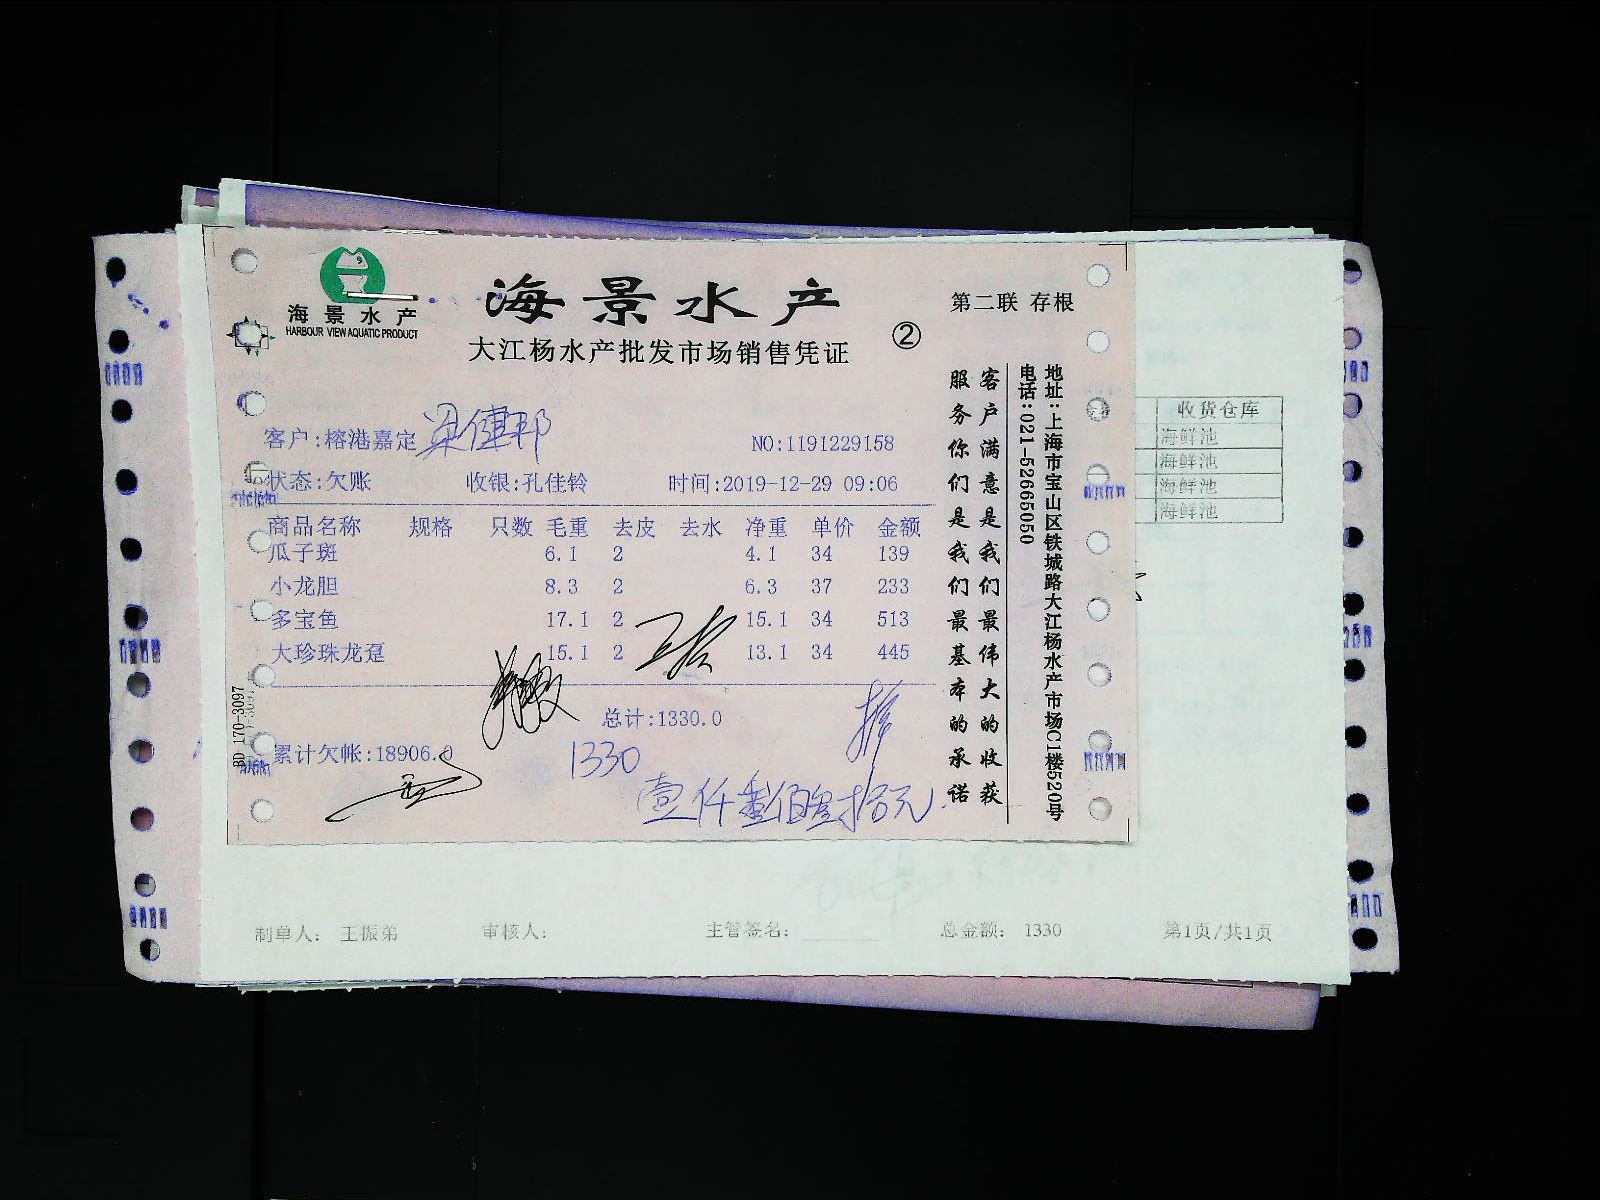 海景水产
HARBOUR VIEW AQUATIC PRODUCT
海景水产
大江杨水产批发市场销售凭证
②
第二联 存根
客户:榕港嘉定 梁健邦
NO:1191229158
状态:欠账 收银:孔佳铃 时间:2019-12-29 09:06
商品名称 规格 只数 毛重 去皮 去水 净重 单价 金额
瓜子斑 6.1 2 4.1 34 139
小龙胆 8.3 2 6.3 37 233
多宝鱼 17.1 2 15.1 34 513
大珍珠龙趸 15.1 2 13.1 34 445
总计:1330.0
累计欠帐:18906.0
1330
壹仟叁佰叁拾元
客户满意是我们最伟大的收获
服务你们是我们最基本的承诺
地址:上海市宝山区铁城路大江杨水产市场C1楼520号
电话:021-52665050
BD 170-3097
收货仓库
海鲜池
海鲜池
海鲜池
海鲜池
制单人: 王振弟 审核人: 主管签名: 总金额: 1330 第1页/共1页